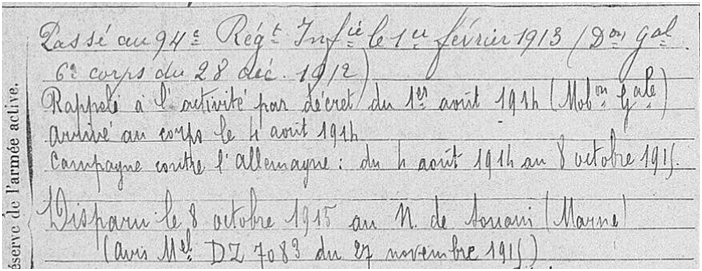 Passé au 94e Régt Infie le 1er février 1913 (Don Gal
6e corps du 28 déc. 1912)
Rappelé à l'activité par décret du 1er août 1914 (Mobon Gale)
Arrivé au corps le 4 août 1914
Campagne contre l'Allemagne : du 4 août 1914 au 8 octobre 1915.
Disparu le 8 octobre 1915 au N. de Souain (Marne)
(avis Mel DZ 7083 du 27 novembre 1915)
éserve de l'armée active.